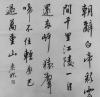 朝辭白帝彩雲
間千里江陵一日
還兩岸猿聲
啼不住輕舟已
過萬重山